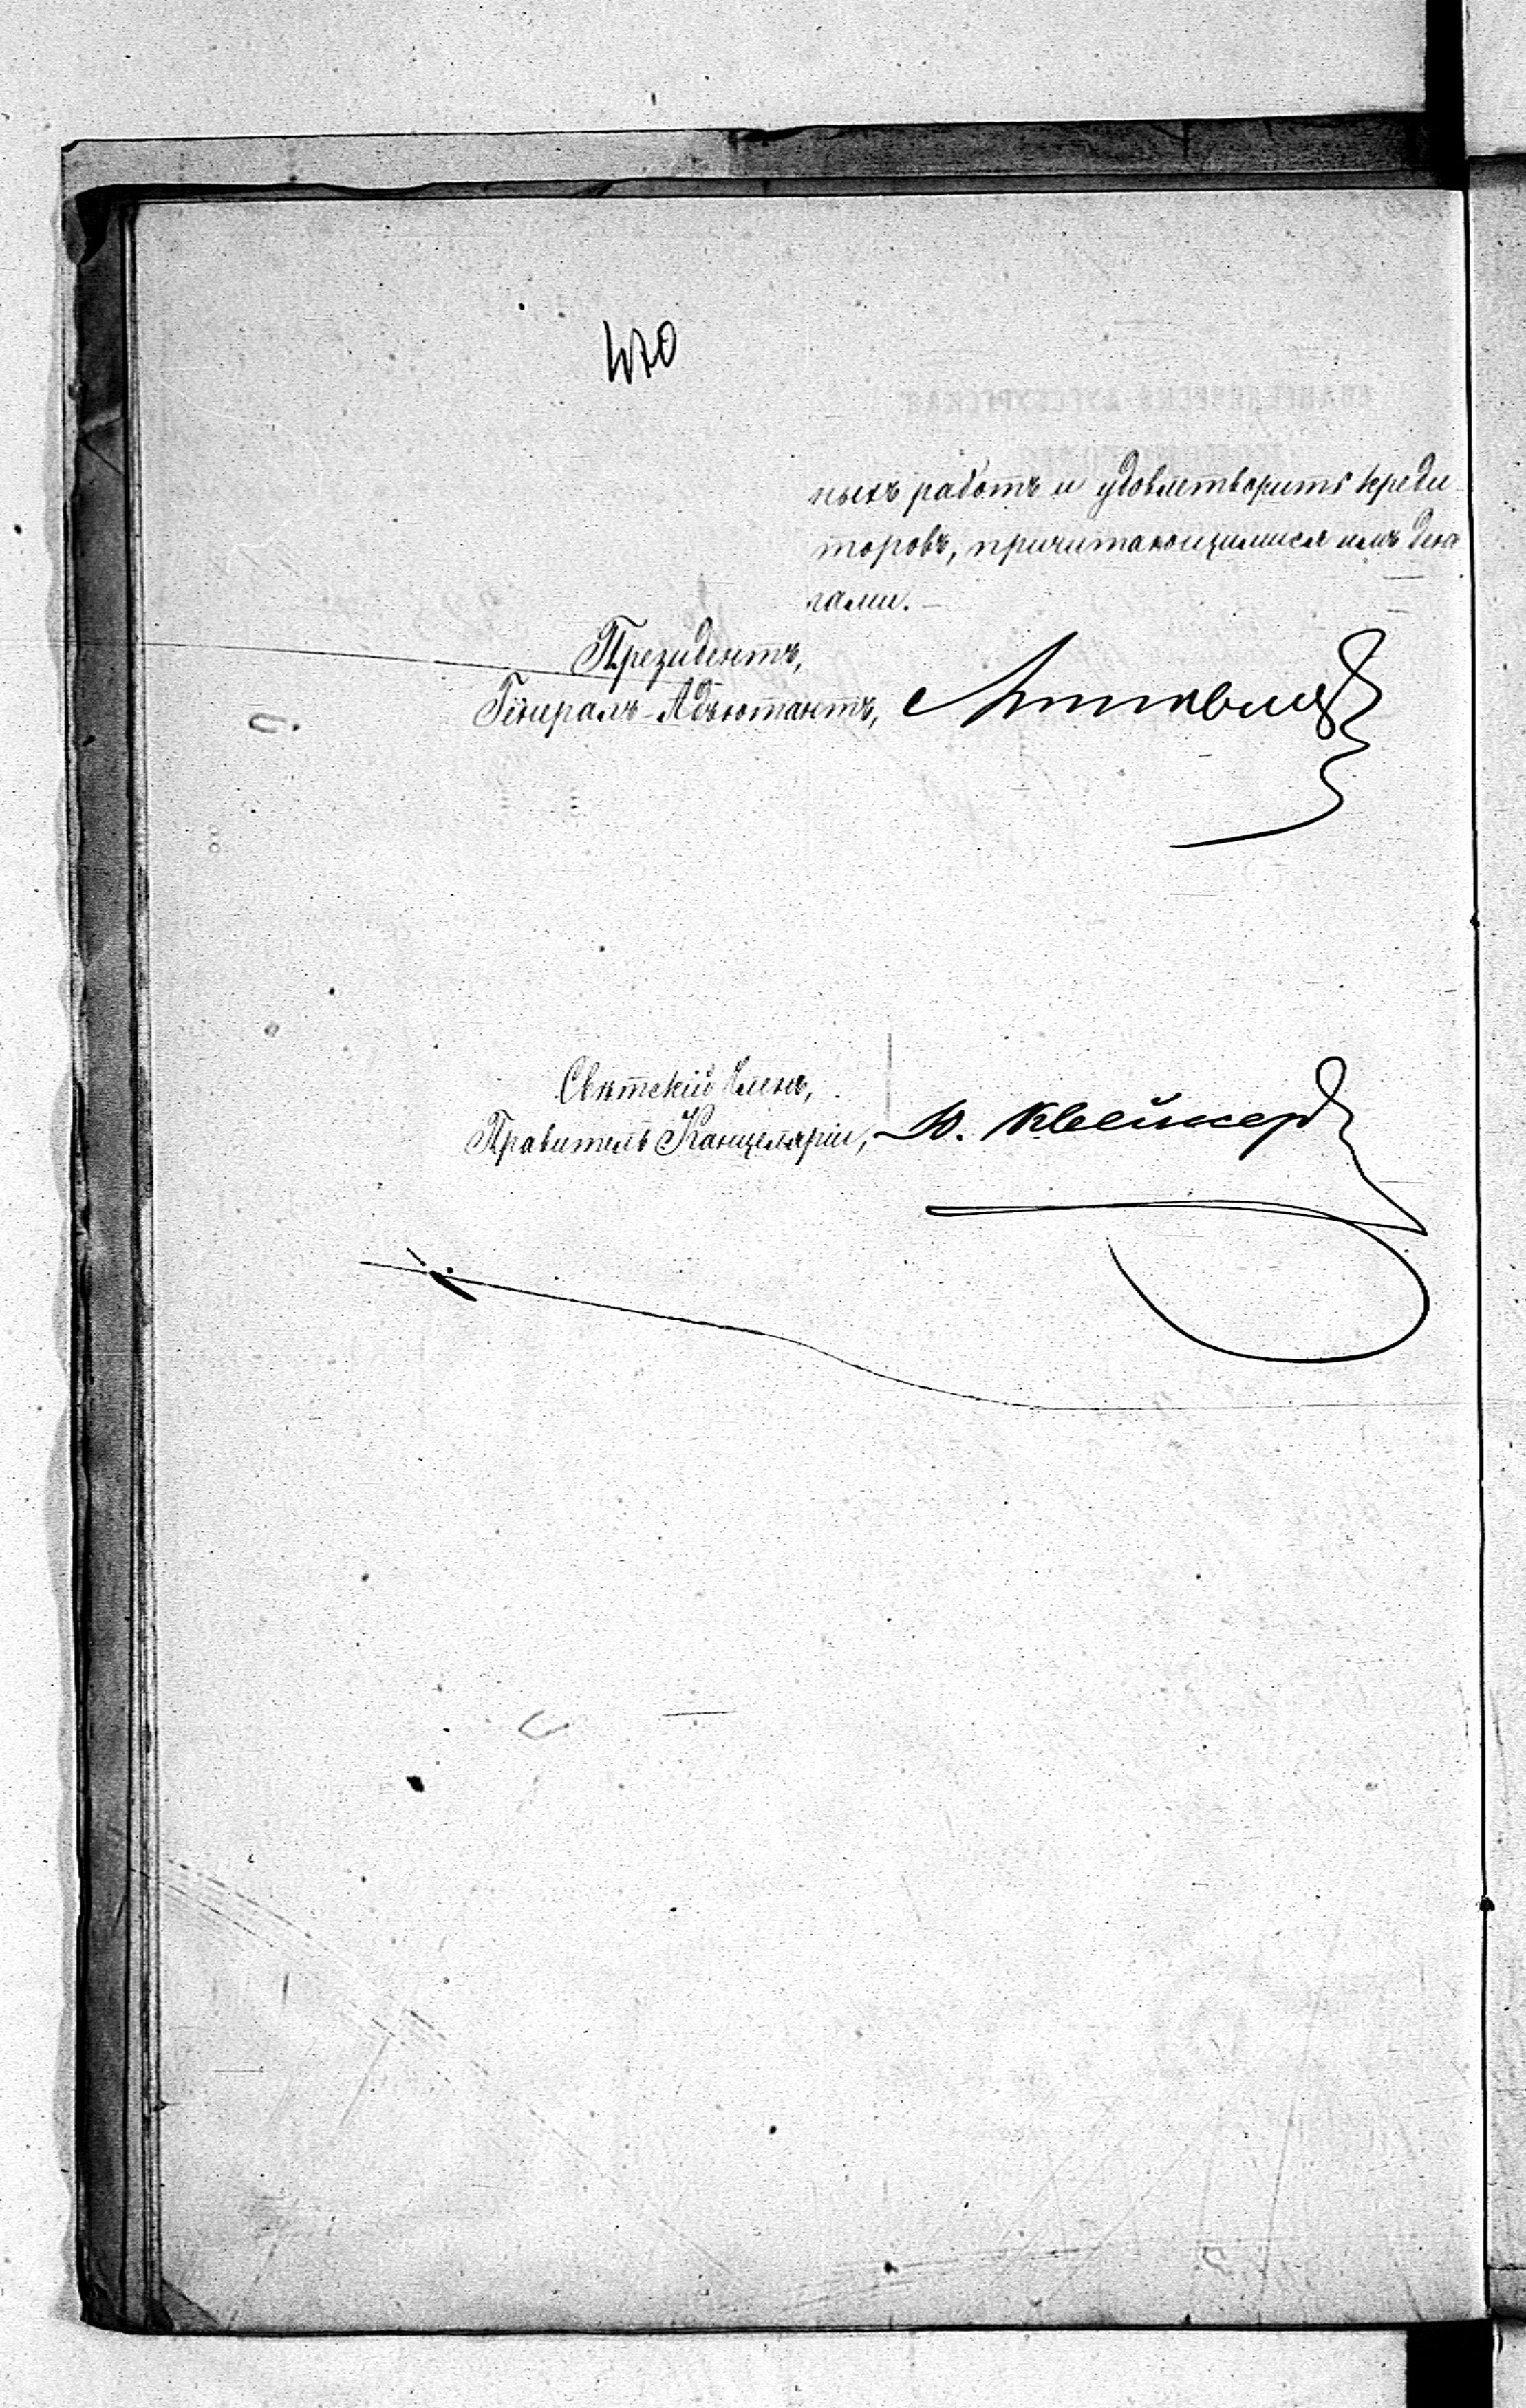 470
ныхъ работъ и удовлетворить креди-
торовъ, причитающимися имъ день-
гами.
Президентъ,
Генералъ-Адъютантъ,
Свѣтскій Членъ,
Правитель Канцеляріи, Ю.